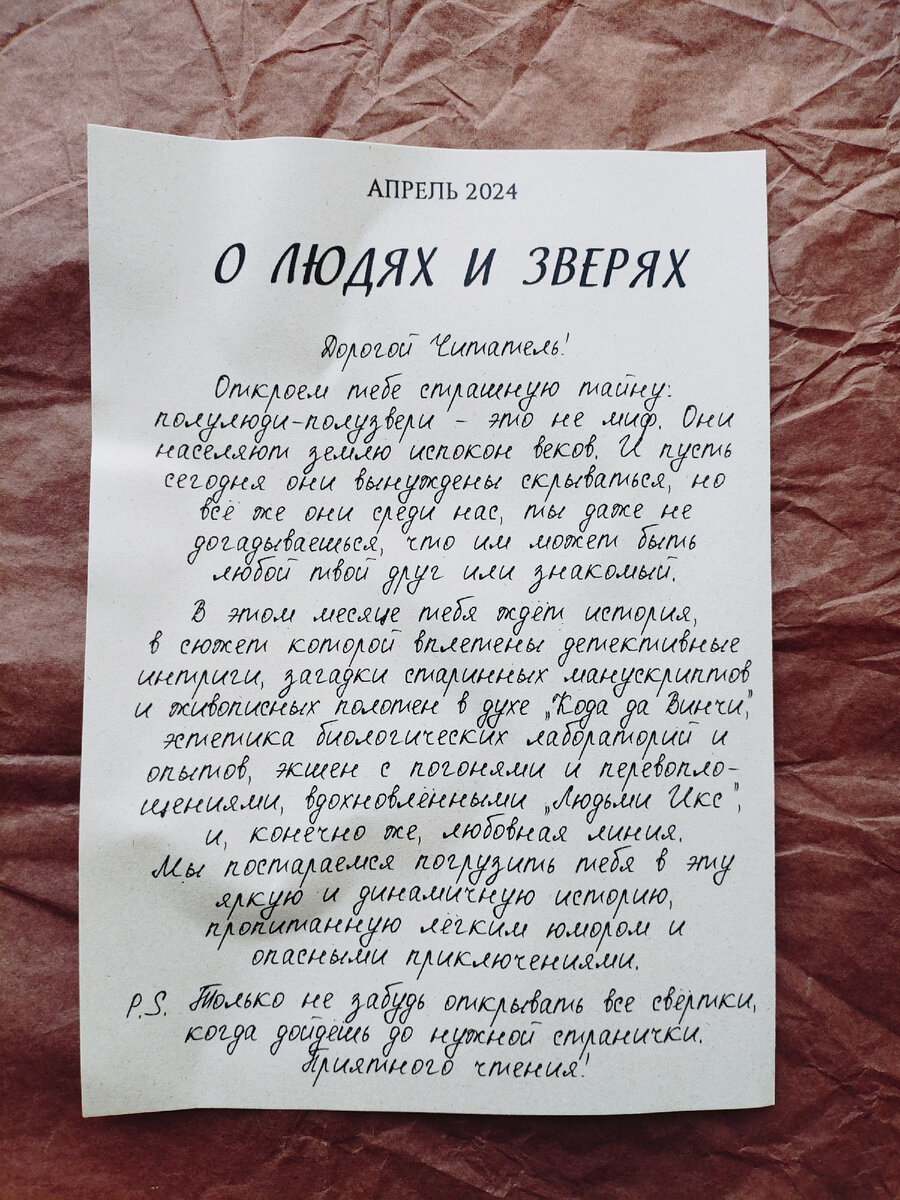 АПРЕЛЬ 2024
О ЛЮДЯХ И ЗВЕРЯХ
Дорогой Читатель!
Откроем тебе страшную тайну:
полулюди-полузвери - это не миф. Они
населяют землю испокон веков. И пусть
сегодня они вынуждены скрываться, но
всё же они среди нас, ты даже не
догадываешься, что им может быть
любой твой друг или знакомый.
В этом месяце тебя ждёт история,
в сюжет которой вплетены детективные
интриги, загадки старинных манускриптов
и живописных полотен в духе „Кода да Винчи",
эстетика биологических лабораторий и
опытов, экшен с погонями и перевопло-
щениями, вдохновлёнными „Людьми Икс",
и, конечно же, любовная линия.
Мы постараемся погрузить тебя в эту
яркую и динамичную историю,
пропитанную лёгким юмором и
опасными приключениями.
P.S. Только не забудь открывать все свёртки,
когда дойдёшь до нужной странички.
Приятного чтения!